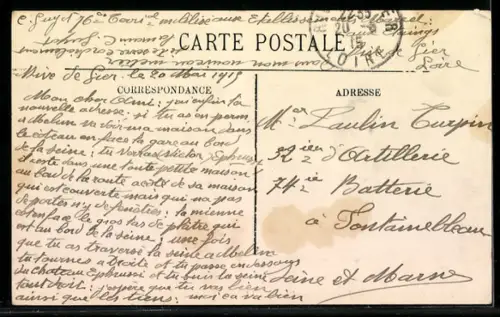 mobilisé aux Etablissements
CARTE POSTALE
sous mon
de Gier
Loire
Rive de Gier, le 20 Mai 1915
CORRESPONDANCE
ADRESSE
Mon cher Ami; j'ai enfin ta
nouvelle adresse; si tu as en perm.
a Melun va voir ma maison dans
le côteau en face la gare au bord
de la seine; tu verras
reste dans une toute petite maison
au bord de la route a coté de sa maison
qui est couverte mais qui n'a pas
de portes n'y de fenêtres; la mienne
est en face le gros tas de plâtre qui
est au bord de la seine; une fois
que tu as traversé la seine a Melun
tu tournes a droite et tu passe en dessous
du chateau Ephrussi et tu suis la seine
tout droit; j'espère que tu vas bien
ainsi que les tiens; moi ça va bien
Paulin Turpin
32 ième d'Artillerie
74 ie Batterie
à Fontainebleau
Seine et Marne
LOIRE